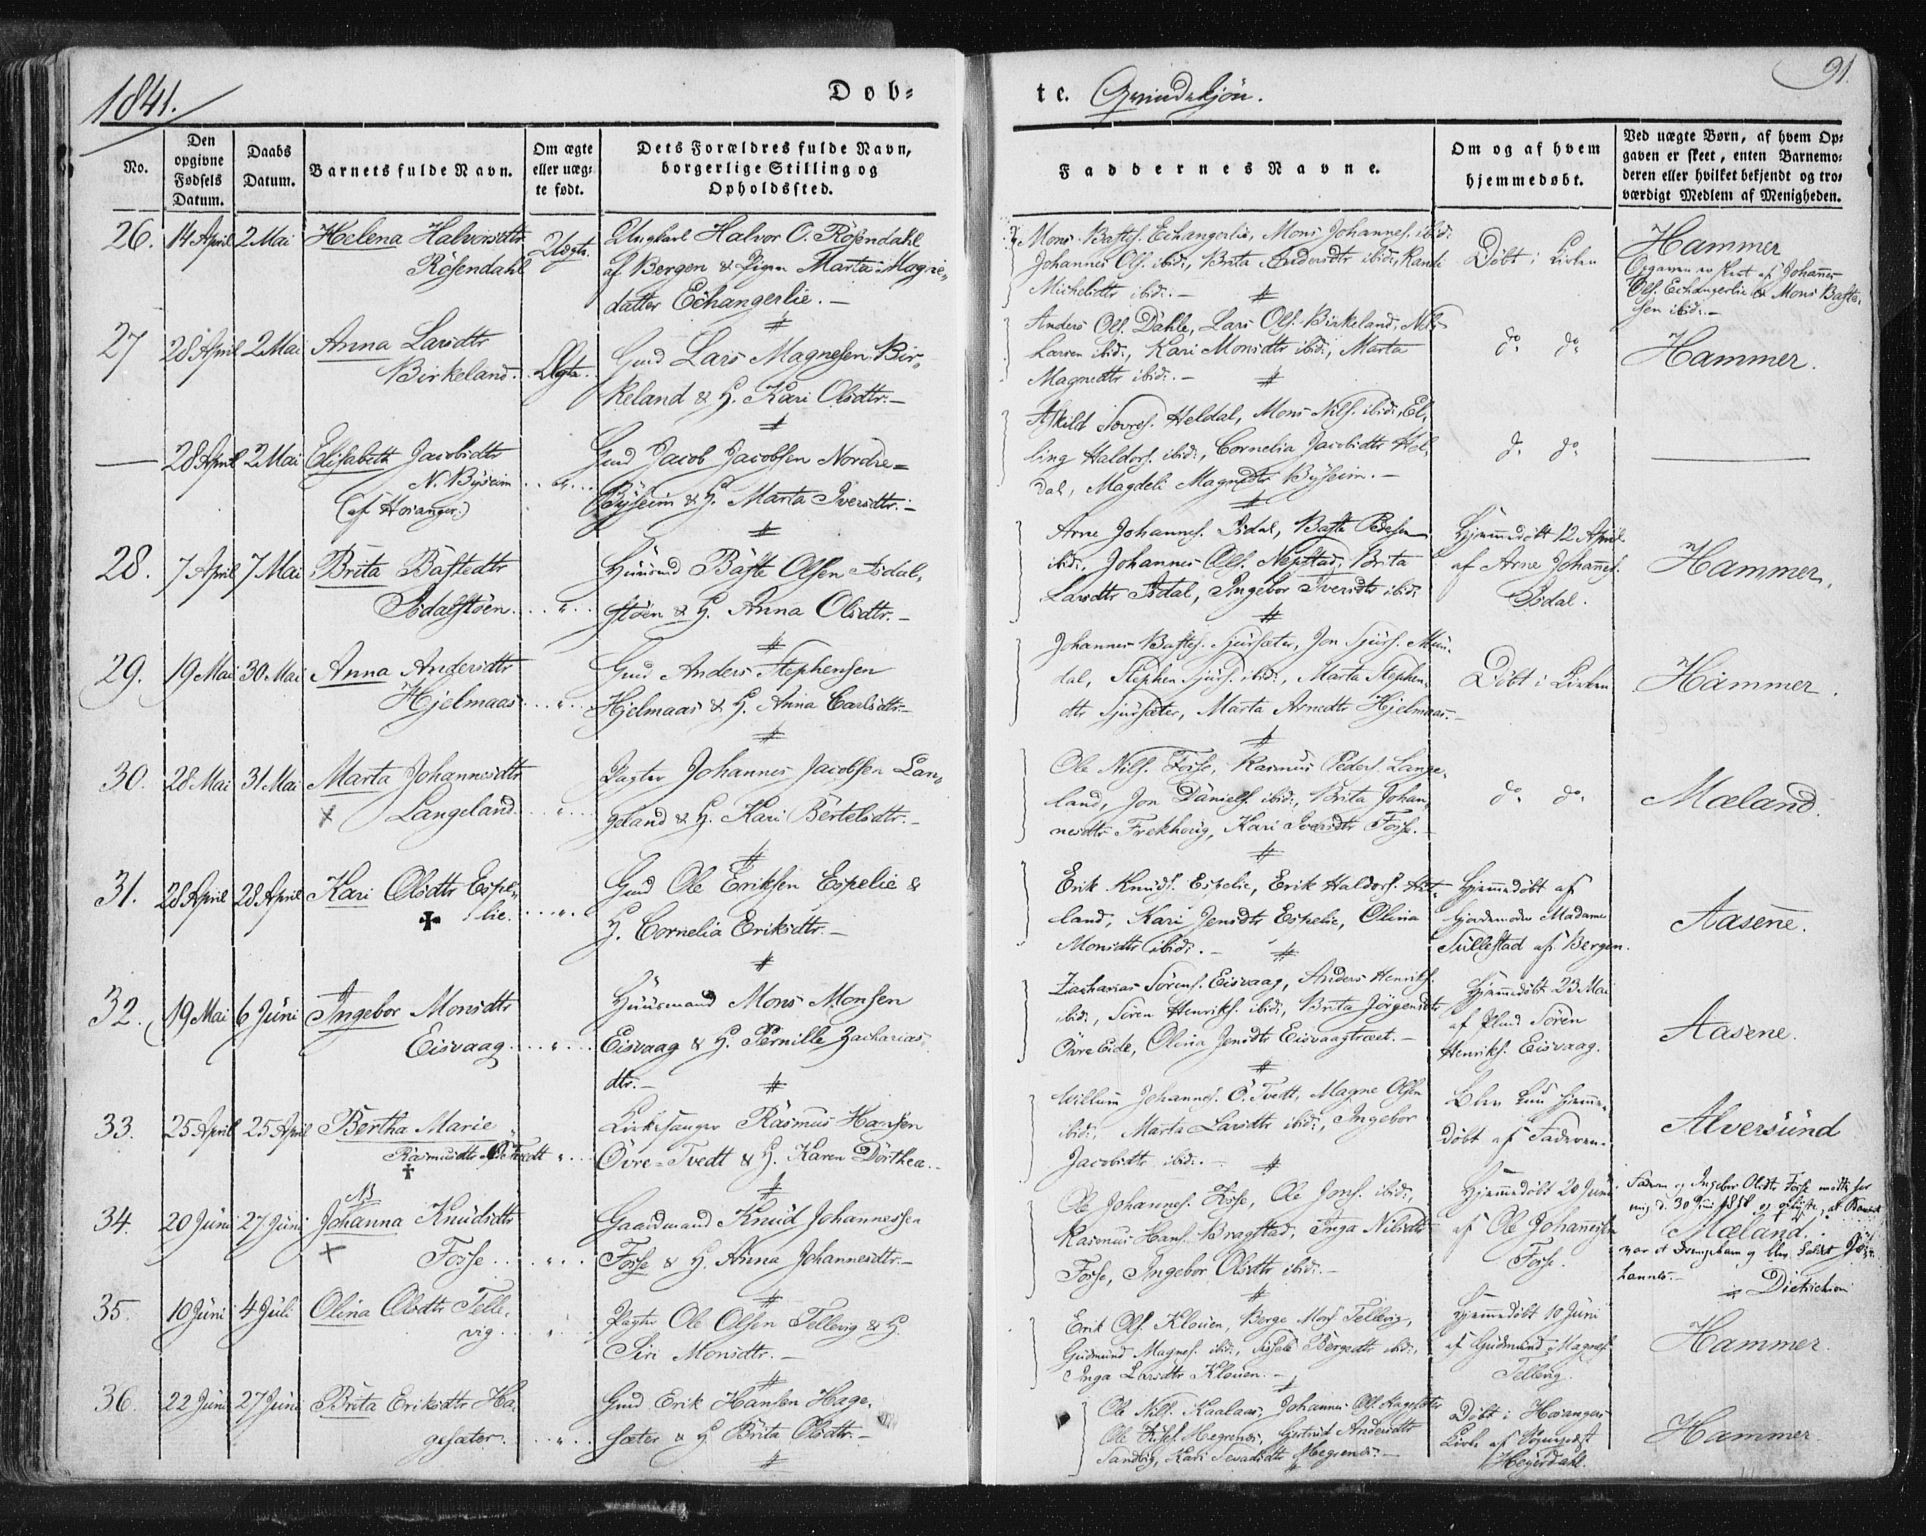 1841.
Døb-
te. Qvindekjön.
91.
No.
Den opgivne Fødsels Datum.
Daabs Datum.
Barnets fulde Navn.
Om ægte eller uæg-te født.
Dets Forældres fulde Navn, borgerlige Stilling og Opholdssted.
Faddernes Navne.
Om og af hvem hjemmedøbt.
Ved uægte Børn, af hvem Op-
gaven er skeet, enten Barnemo-
deren eller hvilket bekjendt og tro-
værdigt Medlem af Menigheden.
26. 14 April 2 Mai Helena Halvorsdtr Uægte. Ungkarl Halvor O. Rösendahl
Rösendahl af Bergen & Pigen Marta Magne-
datter Echangerlie.
Mons Bastes. Echangerlie, Mons Johannes. ibid:
Johannes Ols. ibid:, Brita Andersdtr ibid:, Randi
Michelsdtr ibid:.
Döbt i Kirken
Hammer
Opgaven er skeet af Johannes
Ols. Echangerlie & Mons Baste-
sen ibid:.
27 28 April 2 Mai Anna Larsdtr
Birkeland. Ægte. Gmd Lars Magnesen Bir-
keland & H. Kari Olsdtr.
Anders Ols. Dahle, Lars Ols. Birkeland, Nils
Larsen ibid:, Kari Monsdtr ibid:, Marta
Magnedtr ibid:.
do do
Hammer.
— 28 April 2 Mai Elisabeth Jacobsdtr
N. Byseim
(af Hosanger)
Gmd Jacob Jacobsen Nordre-
Byseim & H. Marta Iversdtr.
Askild Sovres. Heldal, Mons Nils. ibid:, El-
ling Haldors. ibid:, Cornelia Jacobsdtr Hel-
dal, Magdeli Magnedtr Byseim.
do do
28. 7 April 7 Mai Brita Bastedtr
Isdalstöen.
Huusmd Baste Olsen Isdal-
stöen & H. Anna Olsdtr.
Arne Johannes. Isdal, Baste Pedersen
ibid:, Johannes Ols. Nepstad, Brita
Larsdtr Isdal, Ingebor Iversdtr ibid:
Hjemmedöbt 12 April
af Arne Johannes.
Isdal.
Hammer.
29. 19 Mai 30 Mai Anna Andersdtr
Hjelmaas
Gmd Anders Stephensen
Hjelmaas & H. Anna Carlsdtr.
Johannes Bastes. Sjursæter, Jon Sjurs. Mun-
dal, Stephen Sjurs. ibid:, Marta Stephen-
dtr Sjursæter, Marta Arnedtr Hjelmaas.
Döbt i Kirken
Hammer.
30. 28 Mai 31 Mai Marta Johannesdtr
Langeland.
Pagter Johannes Jacobsen Lan-
geland & H. Kari Bertelsdtr.
Ole Nils. Fosse, Rasmus Peders. Lange-
land, Jon Daniels. ibid:, Brita Johan-
nesdtr Frekhoug, Kari Iversdtr Fosse.
do do
Mæland.
31. 28 April 28 April Kari Olsdtr Espe-
lie.
Gmd Ole Eriksen Espelie &
H. Cornelia Eriksdtr.
Erik Knuds. Espelie, Erik Haldors. Het-
land, Kari Jensdtr Espelie, Olina
Monsdtr ibid:.
Hjemmedöbt af
Gjordemoder Madame
Tullestad af Bergen.
Aasene.
32. 19 Mai 6 Juni Ingebor Monsdtr
Eisvaag.
Huusmand Mons Monsen
Eisvaag & H. Pernille Zacharias-
dtr.
Zacharias Sörens. Eisvaag, Anders Henriks.
ibid:, Sören Henriks. ibid:, Brita Jörgensdtr
Övre Eide, Olina Jensdtr Eisvaagtræet.
Hjemmedöbt 23 Mai
af Sören
Henriks. Eisvaag.
Aasene.
33. 25 April 25 April Bertha Marie
Rasmusdtr Ö. Tvedt
Kirkesanger Rasmus Hansen
Övre-Tvedt & H. Karen Dorthea.
Willum Johannes. Ö. Tvedt, Magne Olsen
ibid:, Marta Larsdtr ibid:, Ingebor
Jacobsdtr ibid:.
Blev kun hjemme-
döbt af Faderen.
Alversund
34. 20 Juni 27 Juni NB
Johanna Knudsdtr
Fosse
Gaardmand Knud Johannessen
Fosse & H. Anna Johannesdtr.
Ole Johannes. Fosse, Ole Jons. ibid:,
Rasmus Hans. Bragstad, Inga Nilsdtr
Fosse, Ingebor Olsdtr ibid:.
Hjemmedöbt 20 Juni
af Ole Johannesen
Fosse.
Faderen og Ingebor Olsdtr Fosse mødte for
mig d. 30 Juni 1858 og oplyste, at Barnet
Mæland.
var et Drengebarn og blev kaldet Jo-
hannes.
Dietrichson
35. 10 Juni 4 Juli Olina Olsdtr Telle-
vig.
Pagter Ole Olsen Tellevig & H.
Siri Monsdtr.
Erik Ols. Kloven, Berge Mons. Tellevig,
Gudmund Magnes. ibid:, Sissele Bergedtr ibid:,
Inga Larsdtr Kloven.
Hjemmedöbt 10 Juni
af Gudmund Magnes.
Tellevig.
Hammer.
36. 22 Juni 27 Juni Brita Eriksdtr Ha-
gesæter.
Gmd Erik Hansen Hage-
sæter & H. Brita Olsdtr.
Ole Nils. Kaalaas, Johannes Ols. Hagesæter
Ole Hegrenes, Gjertrud Andersdtr
Sandvig, Kari Hegrenes.
Döbt i Hosanger
Kirke af Sognepræst
Heyerdahl.
Hammer.